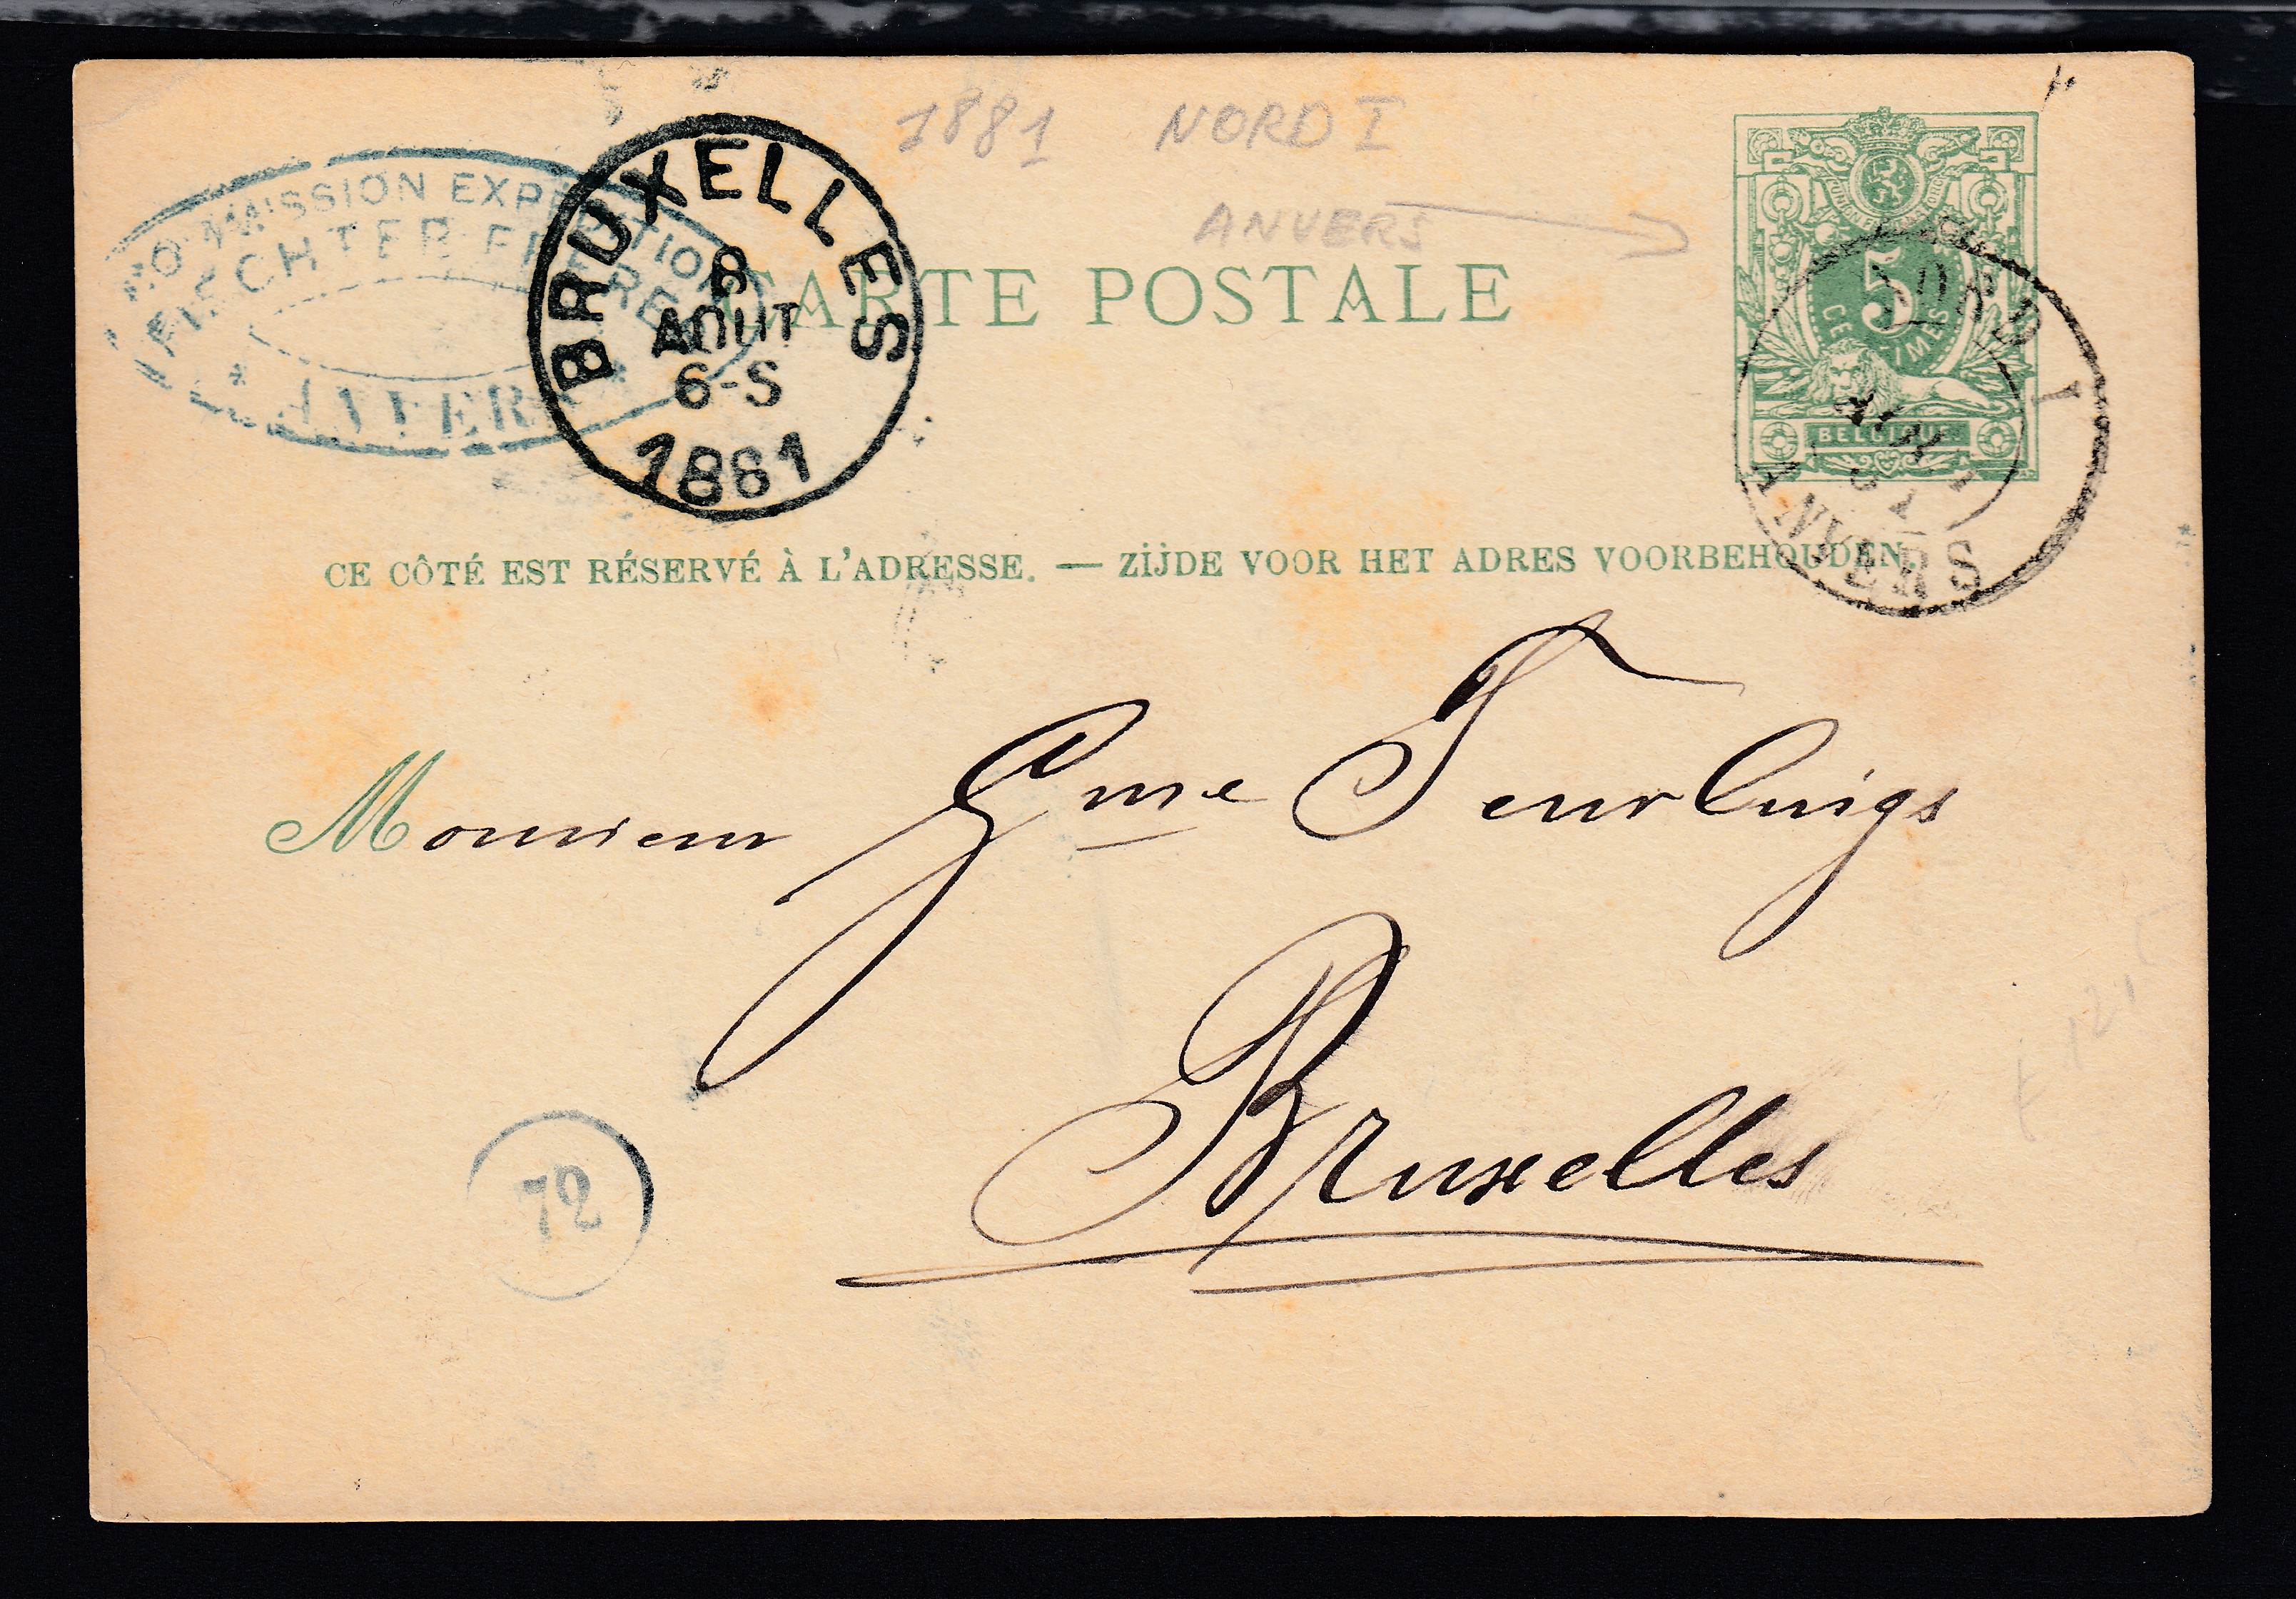 1881 NORD I
ANVERS
COMMISSION EXPEDITION
FRERES
ANVERS
BRUXELLES
8
AOUT
6-S
1881
CARTE POSTALE
5
CENTIMES
BELGIQUE
NORD I
ANVERS
CE CÔTÉ EST RÉSERVÉ À L'ADRESSE. — ZIJDE VOOR HET ADRES VOORBEHOUDEN.
Monsieur Gme Teurlings
Bruxelles
72